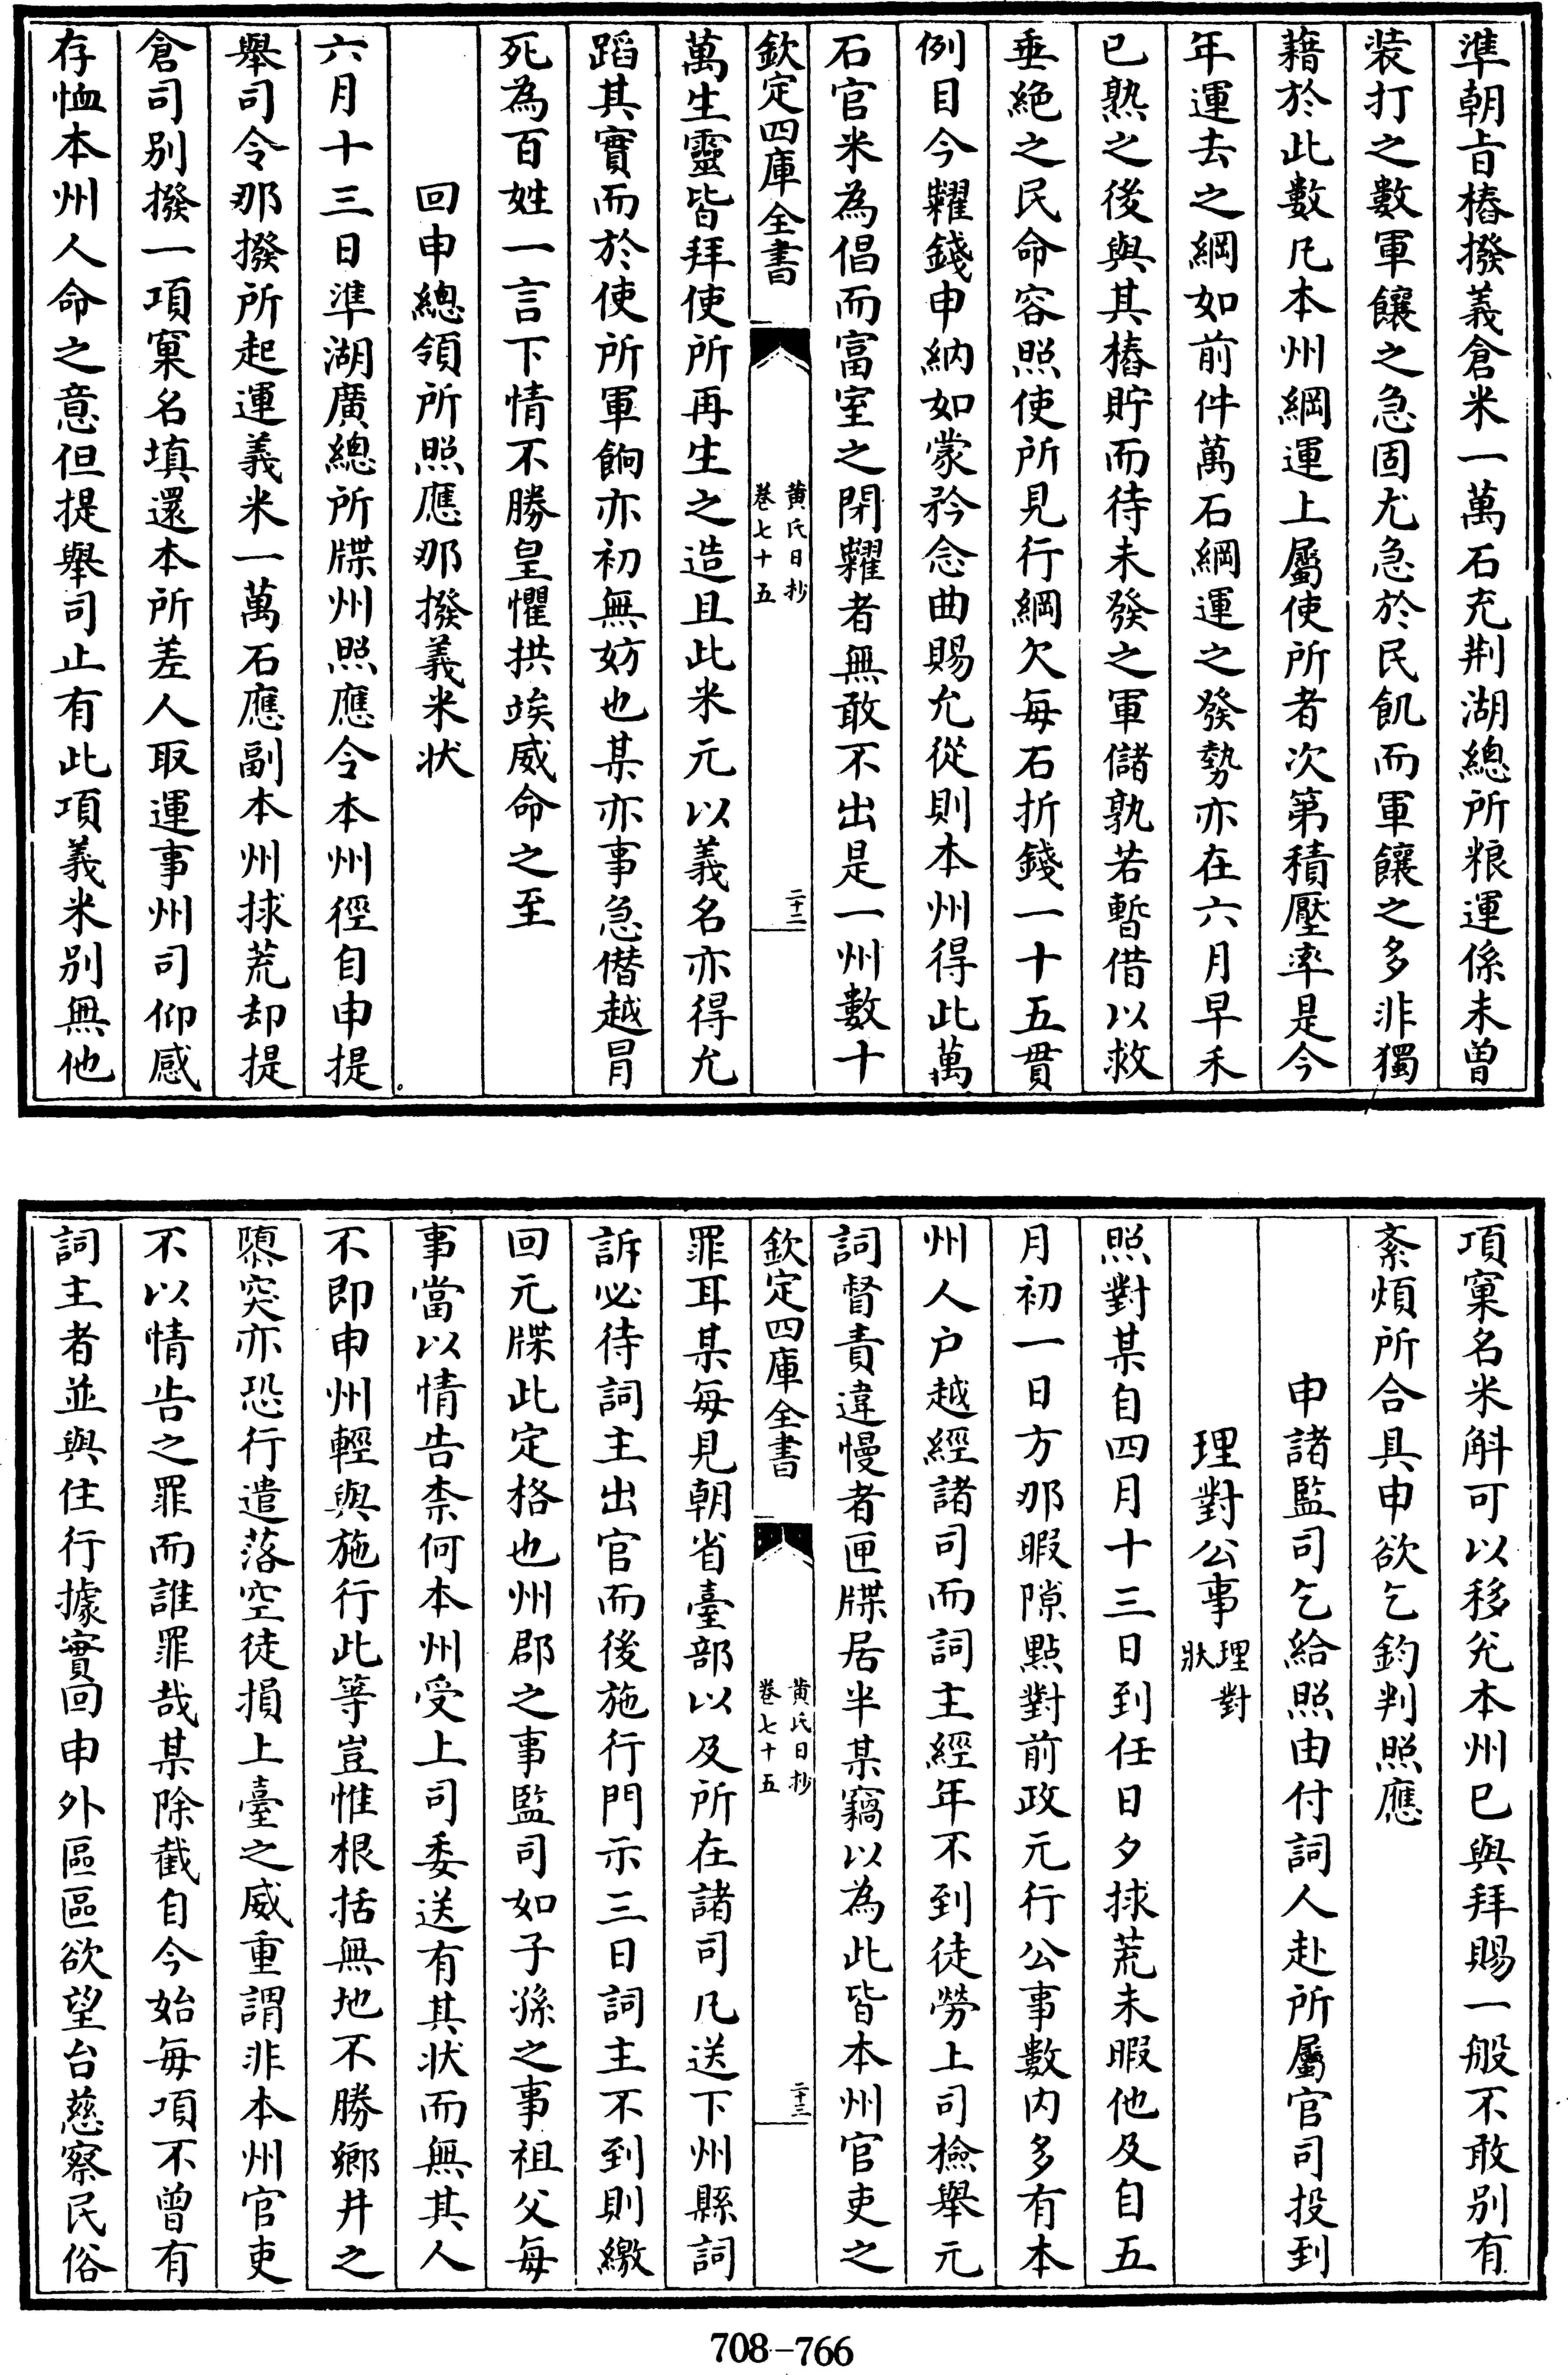 準朝㫖樁撥義倉米一萬石充荆湖總所粮運係未曾
装打之數軍饟之急固尤急於民飢而軍饟之多非獨
藉於此數凡本州綱運上屬使所者次第積壓率是今
年運去之綱如前件萬石綱運之發勢亦在六月早禾
已熟之後與其樁貯而待未發之軍儲孰若暫借以救
垂絶之民命容照使所見行綱欠每石折錢一十五貫
例目今糶錢申納如蒙矜念曲賜允從則本州得此萬
石官米為倡而富室之閉糶者無敢不出是一州數十
欽定四庫全書
黄氏日抄
卷七十五
二十二
萬生靈皆拜使所再生之造且此米元以義名亦得允
蹈其實而於使所軍餉亦初無妨也某亦事急僭越冒
死為百姓一言下情不勝皇懼拱竢威命之至
回申總領所照應那撥義米状
六月十三日準湖廣總所牒州照應令本州徑自申提
舉司令那撥所起運義米一萬石應副本州捄荒却提
倉司别撥一項窠名填還本所差人取運事州司仰感
存恤本州人命之意但提舉司止有此項義米别無他
項窠名米斛可以移兊本州已與拜賜一般不敢别有
紊煩所合具申欲乞鈞判照應
申諸監司乞給照由付詞人赴所屬官司投到
理對公事
理對
狀
照對某自四月十三日到任日夕捄荒未暇他及自五
月初一日方那暇隙點對前政元行公事數内多有本
州人户越經諸司而詞主經年不到徒勞上司檢舉元
詞督責違慢者匣牒居半某竊以為此皆本州官吏之
欽定四庫全書
黄氏日抄
卷七十五
二十三
罪耳某每見朝省臺部以及所在諸司凡送下州縣詞
訴必待詞主出官而後施行門示三日詞主不到則繳
回元牒此定格也州郡之事監司如子孫之事祖父每
事當以情告柰何本州受上司委送有其状而無其人
不即申州輕與施行此等豈惟根括無地不勝鄉井之
隳突亦恐行遣落空徒損上臺之威重謂非本州官吏
不以情告之罪而誰罪哉某除截自今始每項不曾有
詞主者並與住行據實回申外區區欲望台慈察民俗
708-766